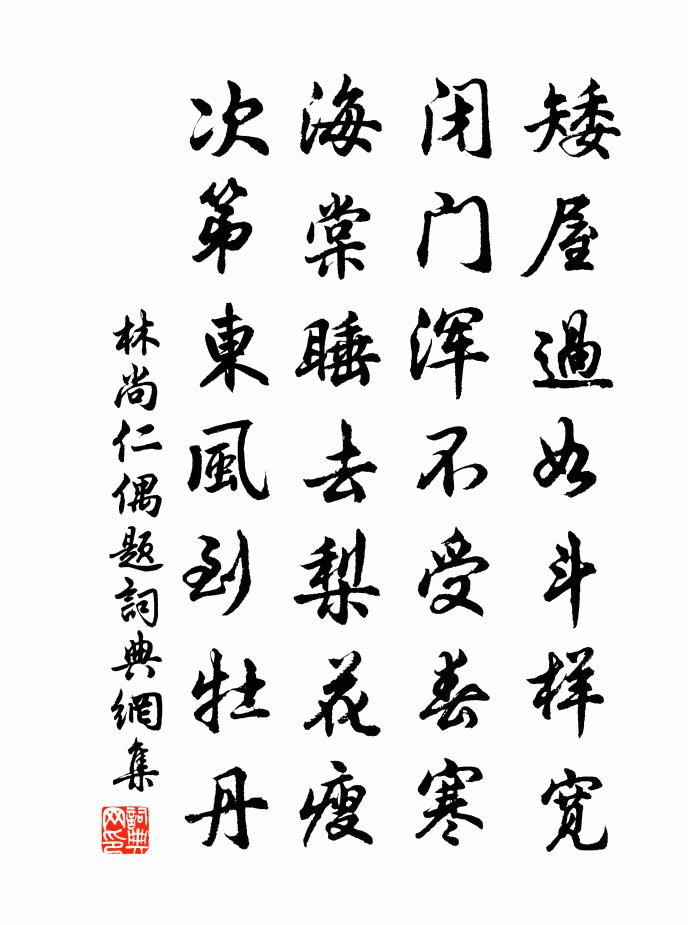 矮屋過如斗样寬
闭门浑不受春寒
海棠睡去梨花瘦
次第東風到牡丹
林尚仁偶题詞典網集
詞典网印